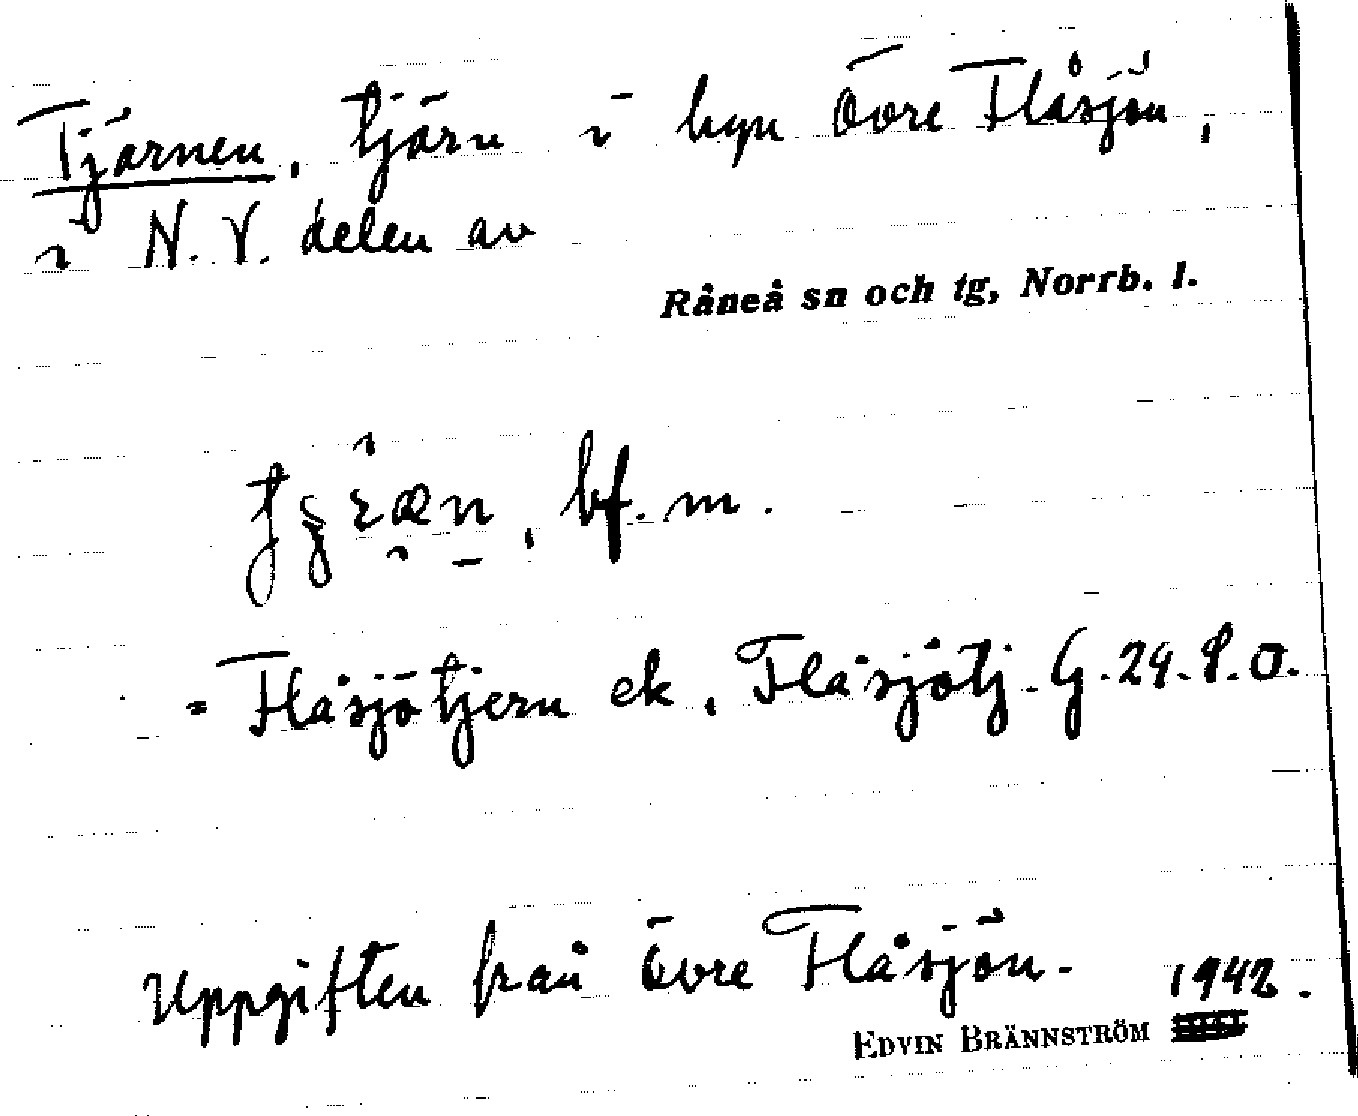 Tjärnen, tjärn i byn Övre Flåsjön,
i N. V. delen av
Råneå sn och tg, Norrb. l.
bf. m.
= Flåsjötjern ek, Flåsjötj. G. 24. S. O.
Uppgiften från Övre Flåsjön.
1942.
EDVIN BRÄNNSTRÖM